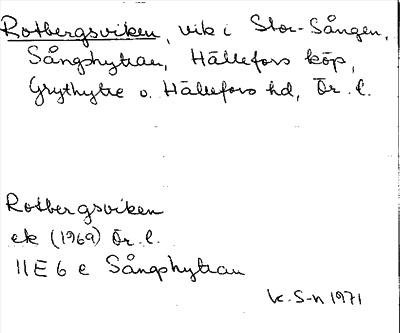 Rotbergsviken, vik i Stor-Sången,
Sångshyttan, Hällefors köp,
Grythytte o. Hällefors hd, Ör. l.
Rotbergsviken
ek (1969) Ör. l.
11E 6 e Sångshyttan
K. S-n 1971